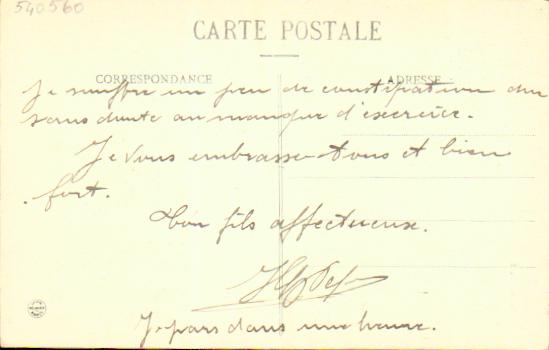 540560
CARTE POSTALE
CORRESPONDANCE
ADRESSE
Je souffre un peu de constipation due
sans doute au manque d'exercice.
Je vous embrasse tous et bien
fort.
Ton fils affectueux.
Je pars dans une heure.